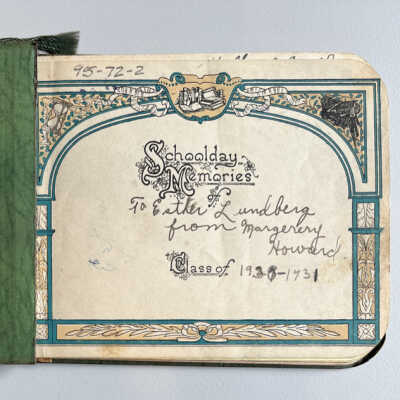 95-72-2
Schoolday
Memories
of
To Esther Lundberg
from Margerery
Howard
Class of 1930-1931